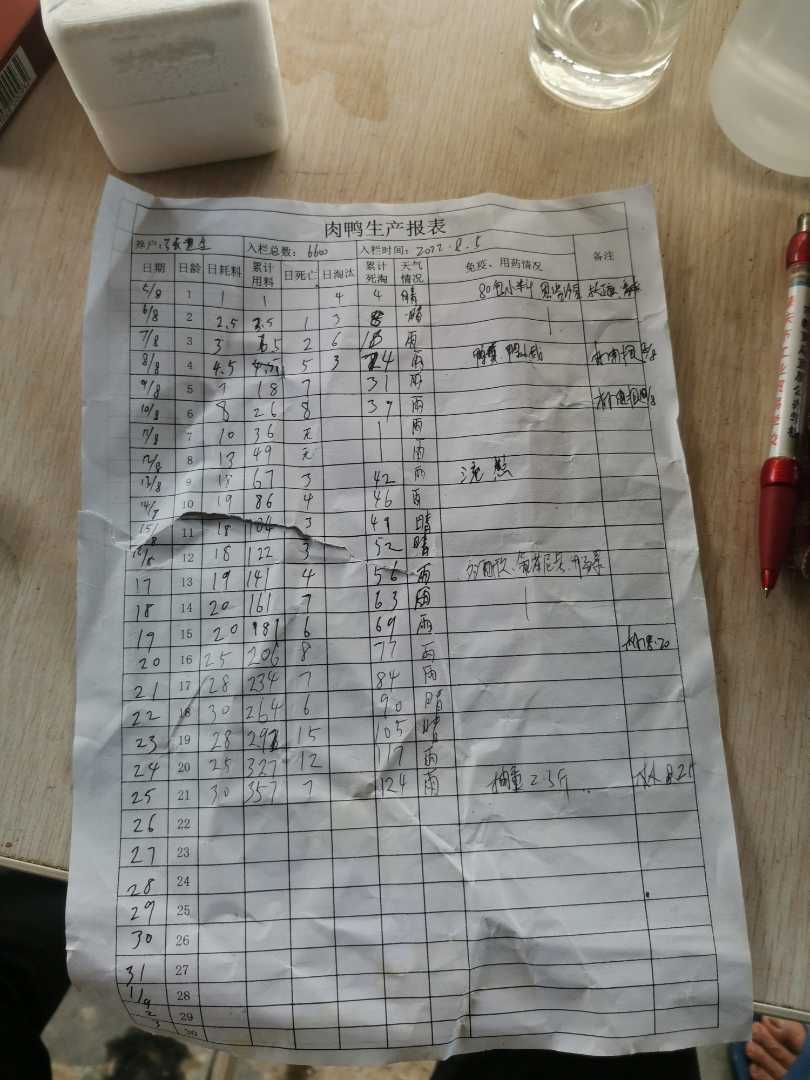 肉鸭生产报表
养户: 入栏总数: 6600 入栏时间: 2022.8.5
日期 日龄 日耗料 累计用料 日死亡 日淘汰 累计死淘 天气情况 免疫、用药情况 备注
5/8 1 1 1 4 4 晴 80包小料
6/8 2 2.5 3.5 1 3 8 晴
7/8 3 3 6.5 2 6 雨
8/8 4 4.5 5 3 24 雨
9/8 5 7 18 7 31 雨
10/8 6 8 26 8 39 雨
7 10 36 无 雨
8 13 49 无 雨
9 18 67 3 42 雨
10 19 86 4 46 雨
15/8 11 18 104 3 49 晴
16/8 12 18 122 3 52 晴
17 13 19 141 4 56 雨
18 14 20 161 7 63 雨
19 15 20 181 6 69 雨
20 16 25 206 8 77 雨
21 17 28 234 7 84 雨
22 18 30 264 6 90 晴
23 19 28 292 15 105 晴
24 20 25 327 12 117 雨
25 21 30 357 7 124 雨 抽重2.3斤 8.25
26 22
27 23
28 24
29 25
30 26
31 27
1/9 28
2 29
3 30